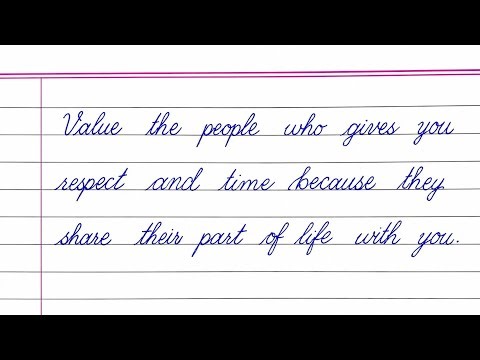 Value the people who gives you
respect and time because they
share their part of life with you.